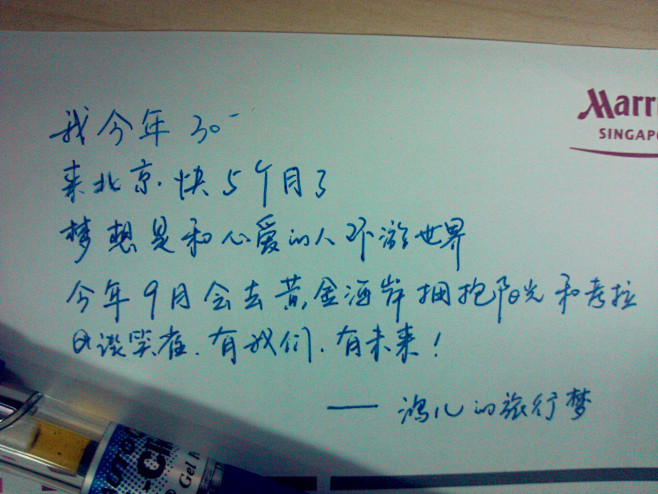 我今年30
Marr
SINGAPO
来北京快5个月了
梦想是和心爱的人环游世界
今年9月会去黄金海岸拥抱阳光和考拉
谈笑在.有我们.有未来!
——鸿儿的旅行梦
Gel